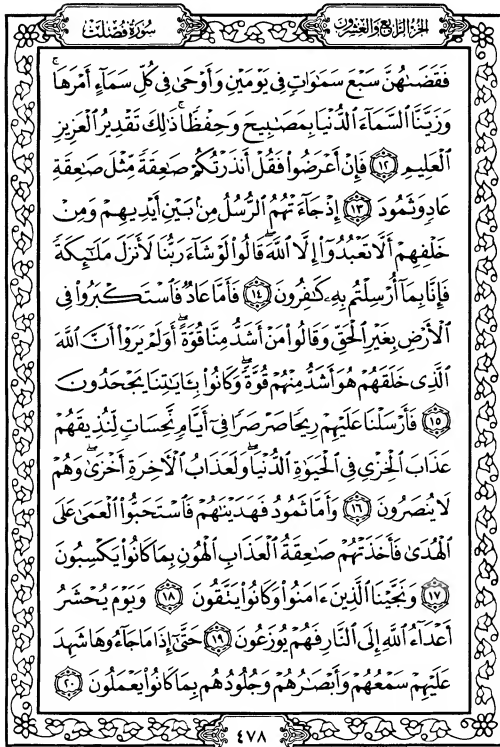 سُورَةُ فُصِّلَتْ
الجُزءُ الرَّابِعُ وَالعِشْرُونَ
فَقَضَىٰهُنَّ سَبْعَ سَمَٰوَاتٍ فِى يَوْمَيْنِ وَأَوْحَىٰ فِى كُلِّ سَمَآءٍ أَمْرَهَا ۚ
وَزَيَّنَّا ٱلسَّمَآءَ ٱلدُّنْيَا بِمَصَٰبِيحَ وَحِفْظًا ۚ ذَٰلِكَ تَقْدِيرُ ٱلْعَزِيزِ
ٱلْعَلِيمِ ١٢ فَإِنْ أَعْرَضُوا۟ فَقُلْ أَنذَرْتُكُمْ صَٰعِقَةً مِّثْلَ صَٰعِقَةِ
عَادٍ وَثَمُودَ ١٣ إِذْ جَآءَتْهُمُ ٱلرُّسُلُ مِنۢ بَيْنِ أَيْدِيهِمْ وَمِنْ
خَلْفِهِمْ أَلَّا تَعْبُدُوٓا۟ إِلَّا ٱللَّهَ ۖ قَالُوا۟ لَوْ شَآءَ رَبُّنَا لَأَنزَلَ مَلَٰٓئِكَةً
فَإِنَّا بِمَآ أُرْسِلْتُم بِهِۦ كَٰفِرُونَ ١٤ فَأَمَّا عَادٌ فَٱسْتَكْبَرُوا۟ فِى
ٱلْأَرْضِ بِغَيْرِ ٱلْحَقِّ وَقَالُوا۟ مَنْ أَشَدُّ مِنَّا قُوَّةً ۖ أَوَلَمْ يَرَوْا۟ أَنَّ ٱللَّهَ
ٱلَّذِى خَلَقَهُمْ هُوَ أَشَدُّ مِنْهُمْ قُوَّةً ۖ وَكَانُوا۟ بِـَٔايَٰتِنَا يَجْحَدُونَ
١٥ فَأَرْسَلْنَا عَلَيْهِمْ رِيحًا صَرْصَرًا فِىٓ أَيَّامٍ نَّحِسَاتٍ لِّنُذِيقَهُمْ
عَذَابَ ٱلْخِزْىِ فِى ٱلْحَيَوٰةِ ٱلدُّنْيَا ۖ وَلَعَذَابُ ٱلْـَٔاخِرَةِ أَخْزَىٰ ۖ وَهُمْ
لَا يُنصَرُونَ ١٦ وَأَمَّا ثَمُودُ فَهَدَيْنَٰهُمْ فَٱسْتَحَبُّوا۟ ٱلْعَمَىٰ عَلَى
ٱلْهُدَىٰ فَأَخَذَتْهُمْ صَٰعِقَةُ ٱلْعَذَابِ ٱلْهُونِ بِمَا كَانُوا۟ يَكْسِبُونَ
١٧ وَنَجَّيْنَا ٱلَّذِينَ ءَامَنُوا۟ وَكَانُوا۟ يَتَّقُونَ ١٨ وَيَوْمَ يُحْشَرُ
أَعْدَآءُ ٱللَّهِ إِلَى ٱلنَّارِ فَهُمْ يُوزَعُونَ ١٩ حَتَّىٰٓ إِذَا مَا جَآءُوهَا شَهِدَ
عَلَيْهِمْ سَمْعُهُمْ وَأَبْصَٰرُهُمْ وَجُلُودُهُم بِمَا كَانُوا۟ يَعْمَلُونَ ٢٠
٤٧٨